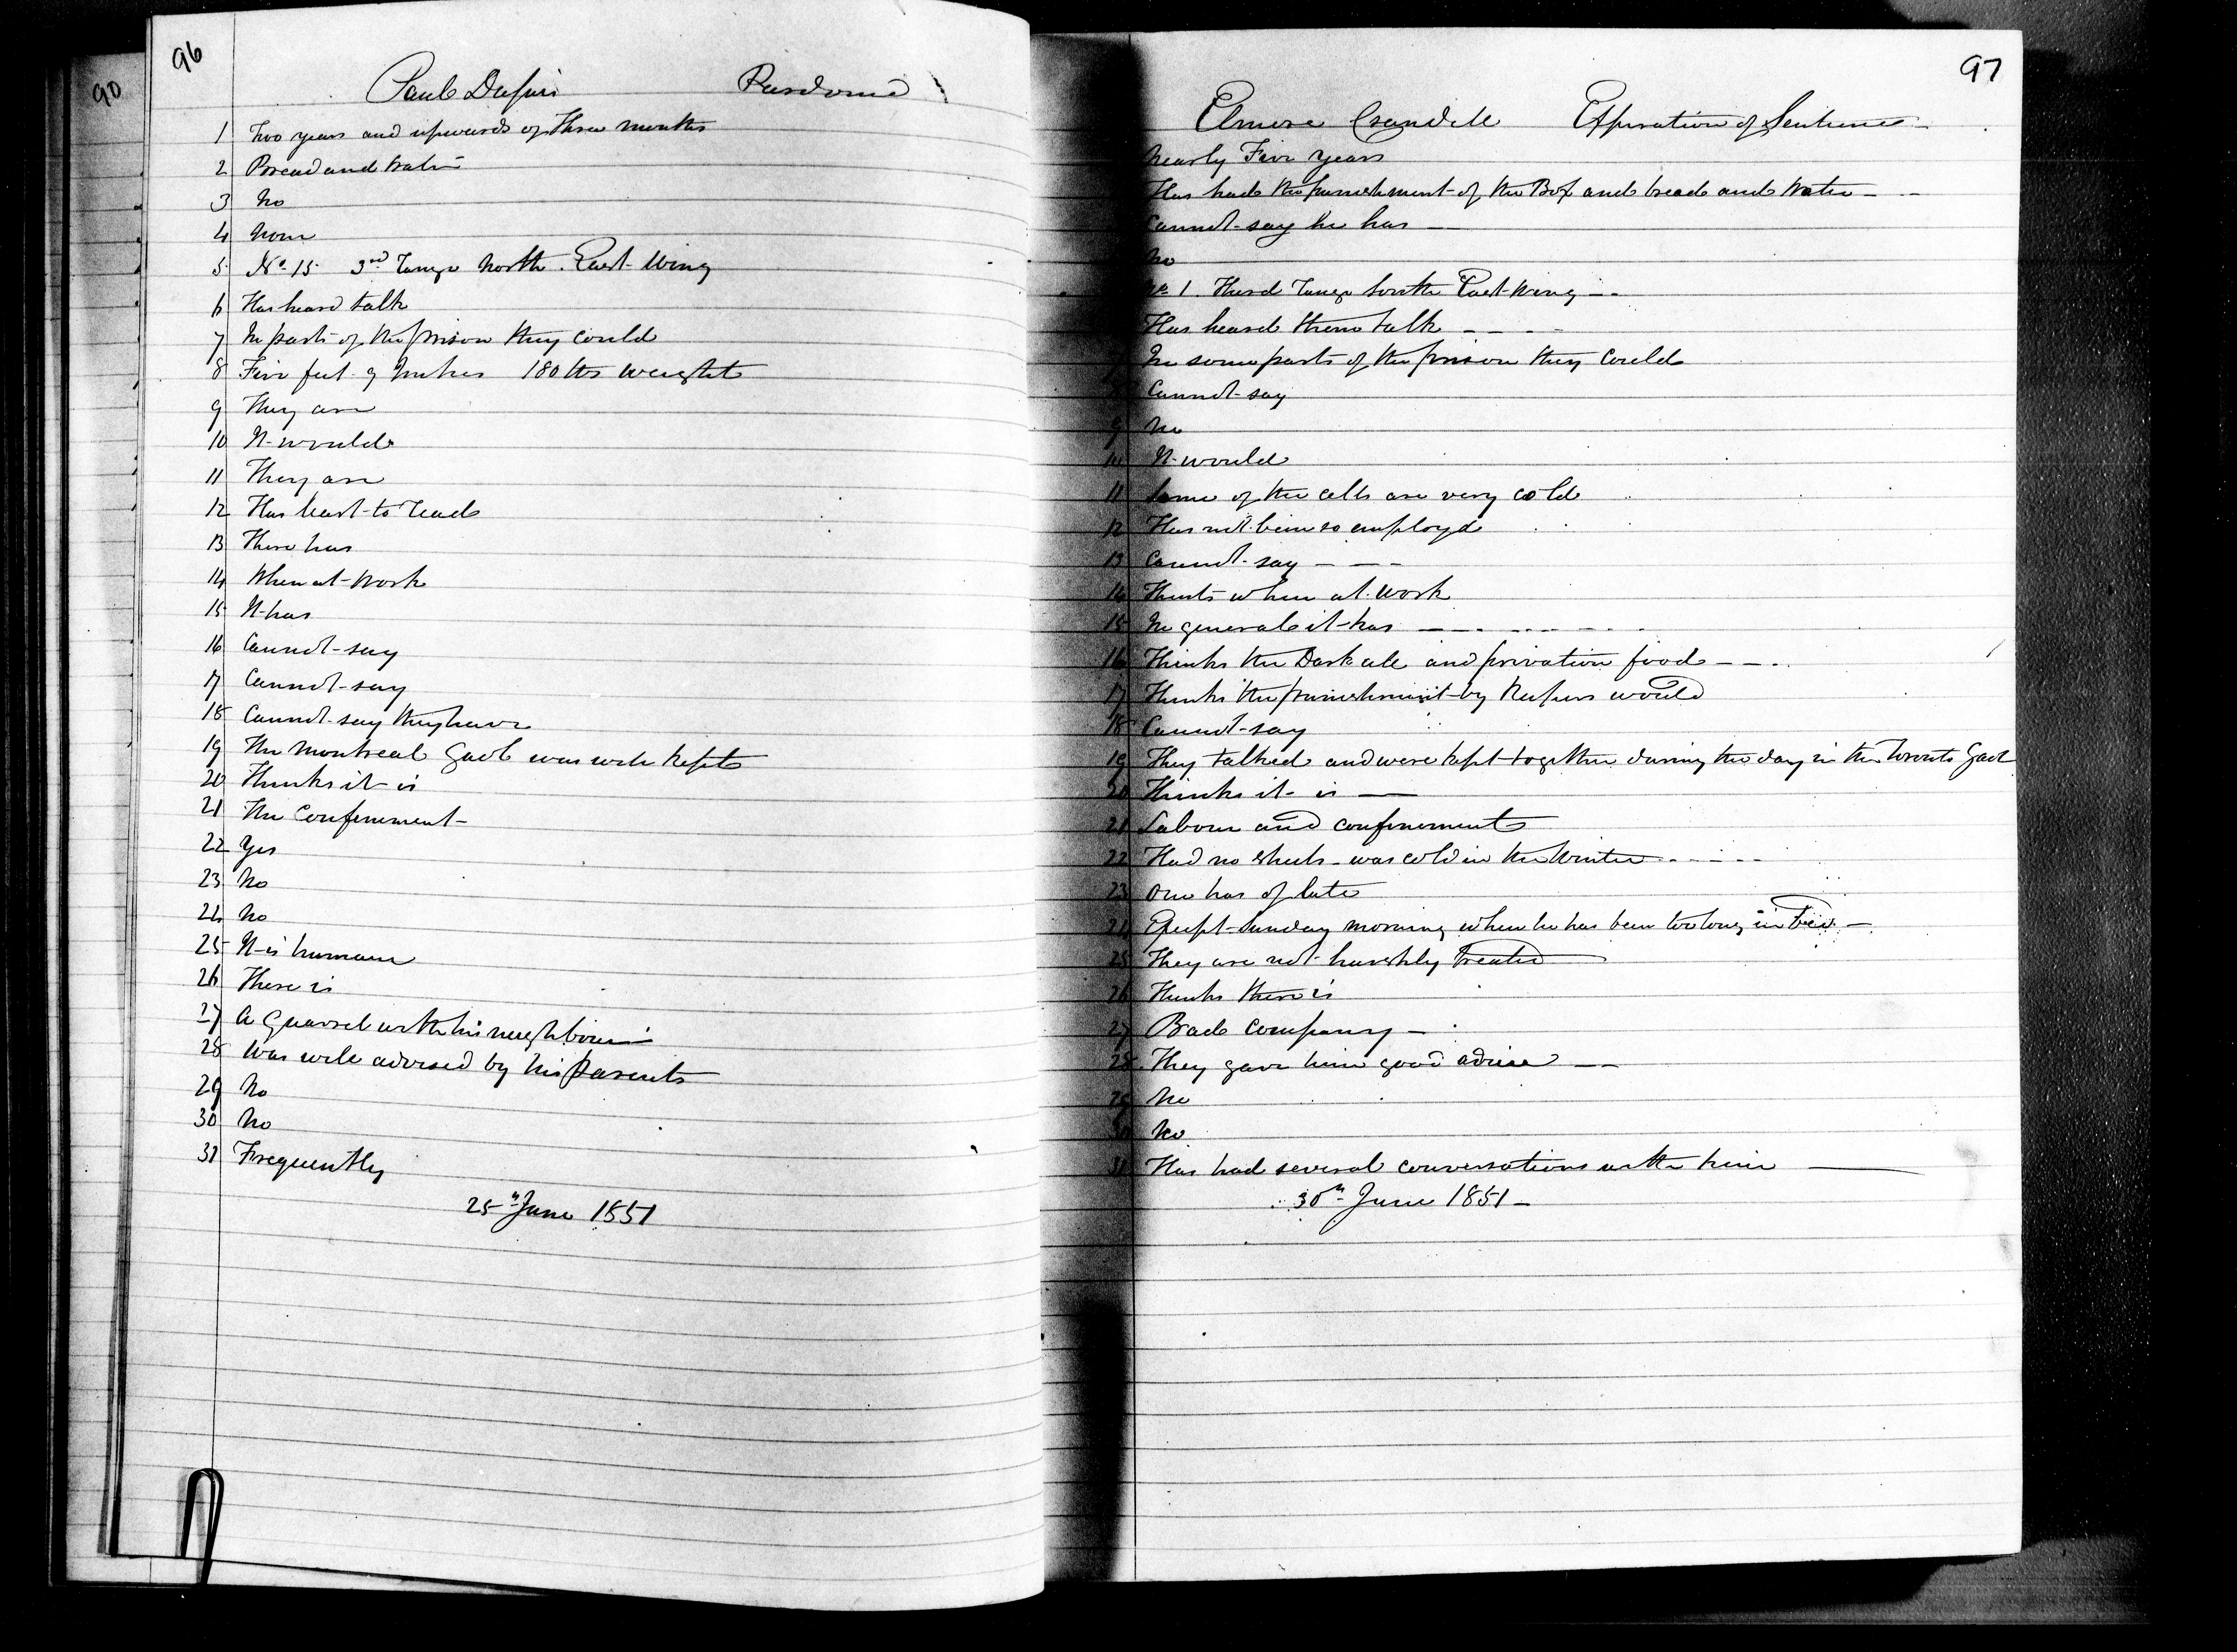 90
96
Paul Dupuis Pardoned
1 Two years and upwards of three months
2 Bread and Water
3 No
4 None
5 No. 15 3rd Range North East Wing
6 Has heard talk
7 In parts of the prison they could
8 Five feet 9 Inches 180 lbs weight
9 They are
10 It would
11 They are
12 Has learnt to read
13 There has
14 When at work
15 It has
16 Cannot say
17 Cannot say
18 Cannot say they have
19 The Montreal Gaol was well kept
20 Thinks it is
21 The Confinement
22 Yes
23 No
24 No
25 It is humane
26 There is
27 A Quarrel with his neighbour
28 Was well advised by his Parents
29 No
30 No
31 Frequently
25th June 1851
97
Elmore Crandell Expiration of Sentence
Nearly Five years
Has had the punishment of the Box and bread and Water
Cannot say he has
No
No. 1. Third Range South East Wing
Has heard them talk
In some parts of the prison they could
Cannot say
9 No
10 It would
11 Some of the cells are very cold
12 Has not been so employd
13 Cannot say
14 Thinks when at work
15 In general it has
16 Thinks the Dark cell and privation food
17 Thinks the punishment by Keepers would
18 Cannot say
19 They talked and were kept together during the day in the Toronto Gaol
20 Thinks it is
21 Labour and confinement
22 Had no sheets was cold in the Winter
23 One has of late
24 Except Sunday morning when he has been too long in bed
25 They are not harshly treated
26 Thinks there is
27 Bad Company
28 They gave him good advise
29 No
30 No
31 Has had several conversations with him
30th June 1851